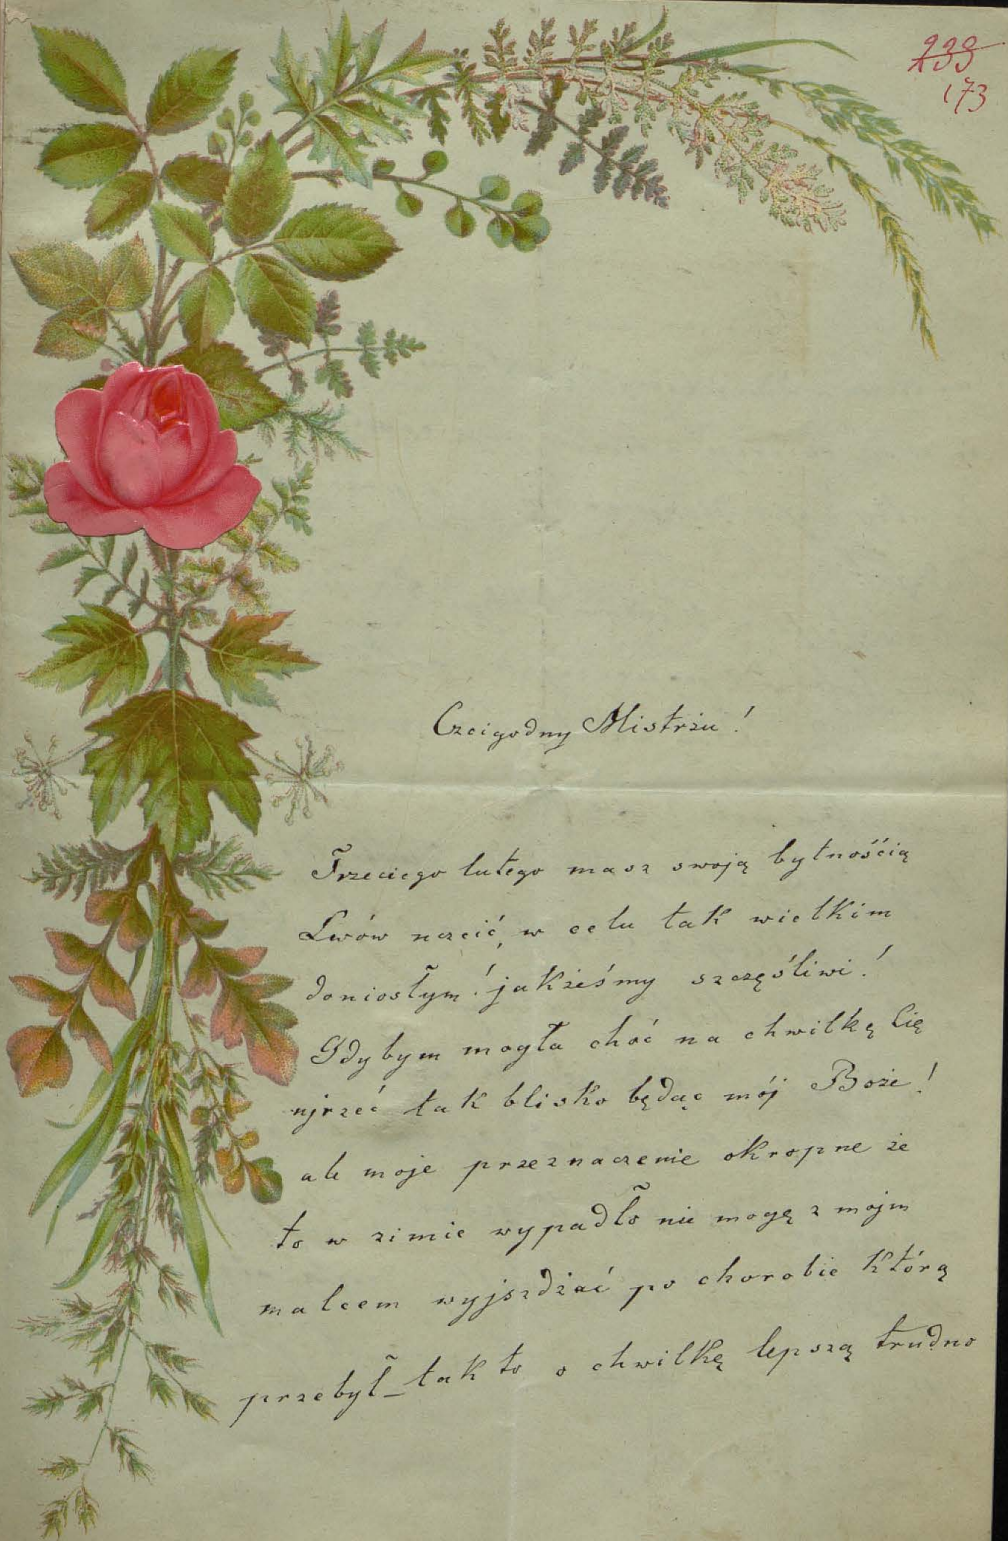 239
173
Czcigodny Mistrzu!
Trzeciego lutego masz swoją bytnośćią
Lwów uczcić, w celu tak wielkim
doniosłym! jakżeśmy szczęśliwi!
Gdybym mogła choć na chwilkę Cię
ujrzeć tak blisko będąc mój Boże!
ale moje przeznaczenie okropne że
to w zimie wypadło nie mogę z moim
malcem wyjszdżać po chorobie którą
przebył – tak to o chwilkę lepszą trudno